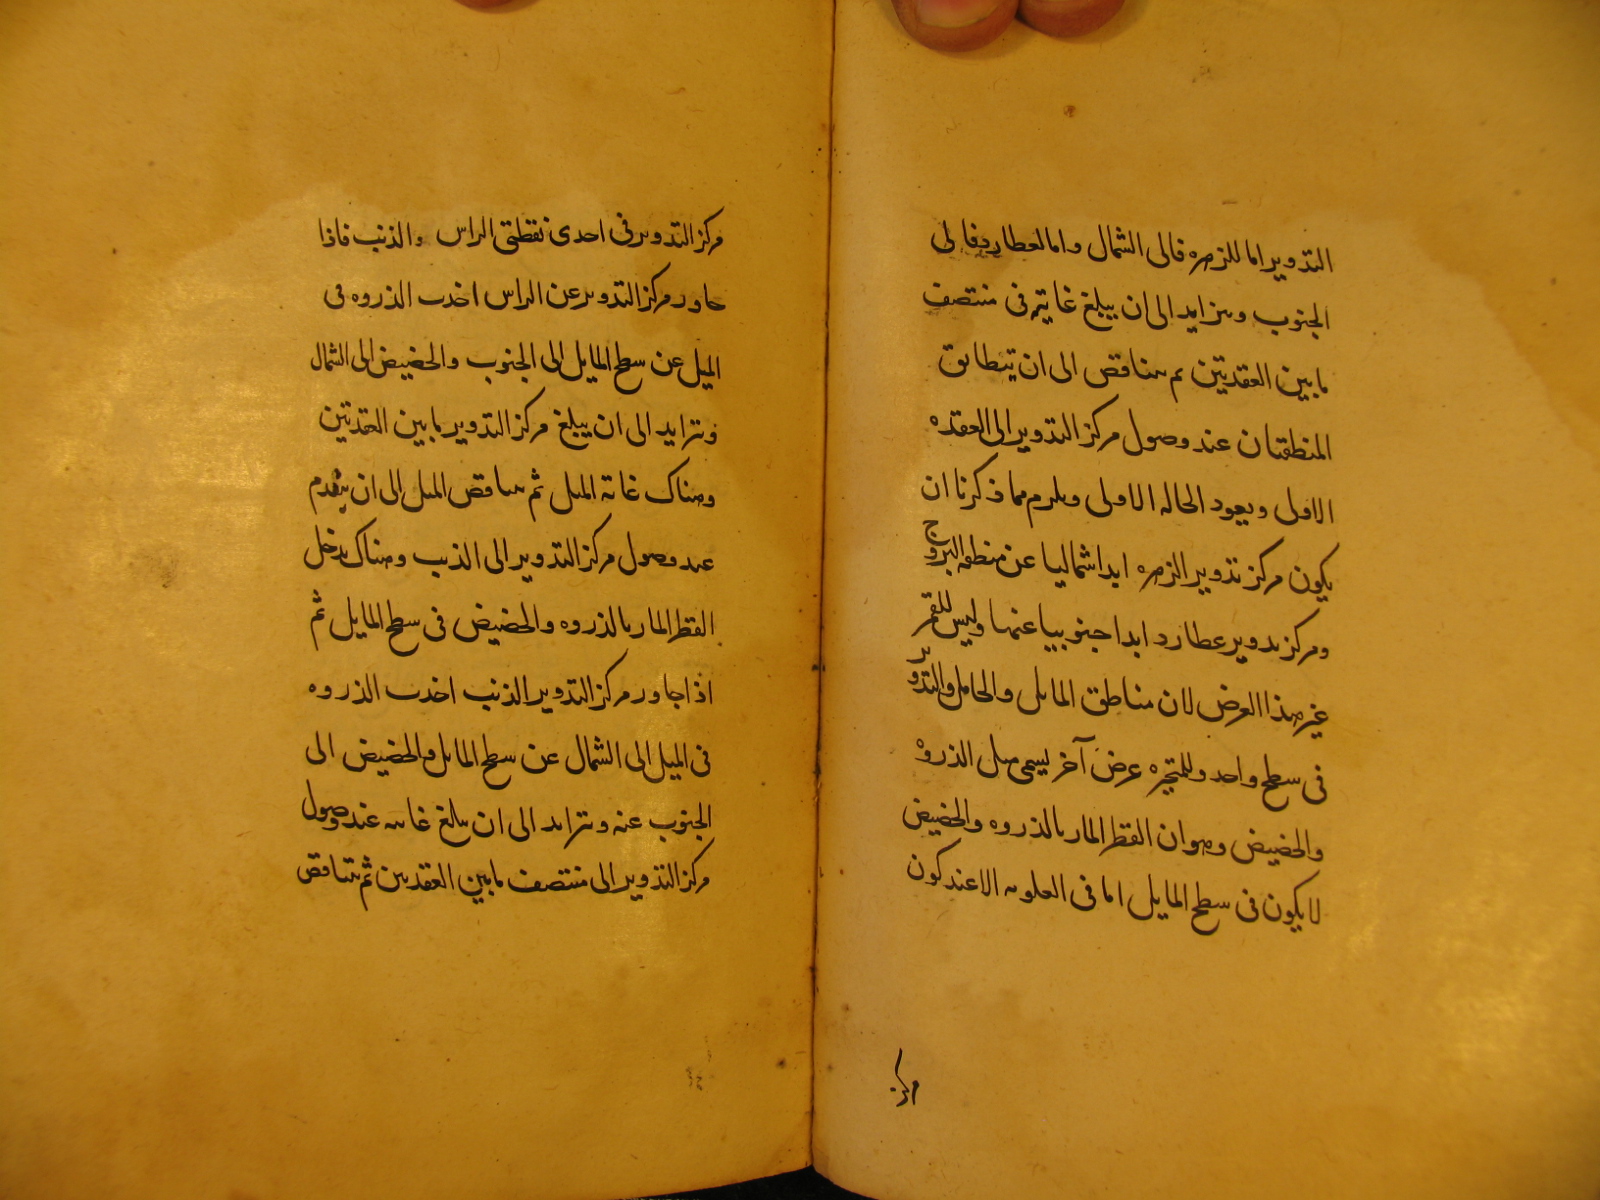 التدوير اما للزهره فالى الشمال واما لعطارد فالى
الجنوب ويتزايد الى ان يبلغ غايته فى منتصف
ما بين العقدتين ثم يتناقص الى ان يتطابق
المنطقتان عند وصول مركز التدوير الى العقده
الاولى ويعود الحاله الاولى ويلزم مما ذكرنا ان
يكون مركز تدوير الزهره ابدا شماليا عن منطقه البروج
ومركز تدوير عطارد ابدا جنوبيا عنها وليس للقمر
غير هذا العرض لان مناطق المايل والحامل والتدوير
فى سطح واحد وللمتحيره عرض آخر يسمى ميل الذروه
والحضيض وهو ان القطر المار بالذروه والحضيض
لا يكون فى سطح المايل اما فى العلويه الا عند كون
مركز
مركز التدوير فى احدى نقطتى الراس والذنب فاذا
جاوز مركز التدوير عن الراس اخذت الذروه فى
الميل عن سطح المايل الى الجنوب والحضيض الى الشمال
وتزايد الى ان يبلغ مركز التدوير ما بين العقدتين
وهناك غاية الميل ثم يتناقص الميل الى ان ينعدم
عند وصول مركز التدوير الى الذنب وهناك يدخل
القطر المار بالذروه والحضيض فى سطح المايل ثم
اذا جاوز مركز التدوير الذنب اخذت الذروه
فى الميل الى الشمال عن سطح المايل والحضيض الى
الجنوب عنه ويتزايد الى ان يبلغ غايته عند وصول
مركز التدوير الى منتصف ما بين العقدتين ثم يتناقص